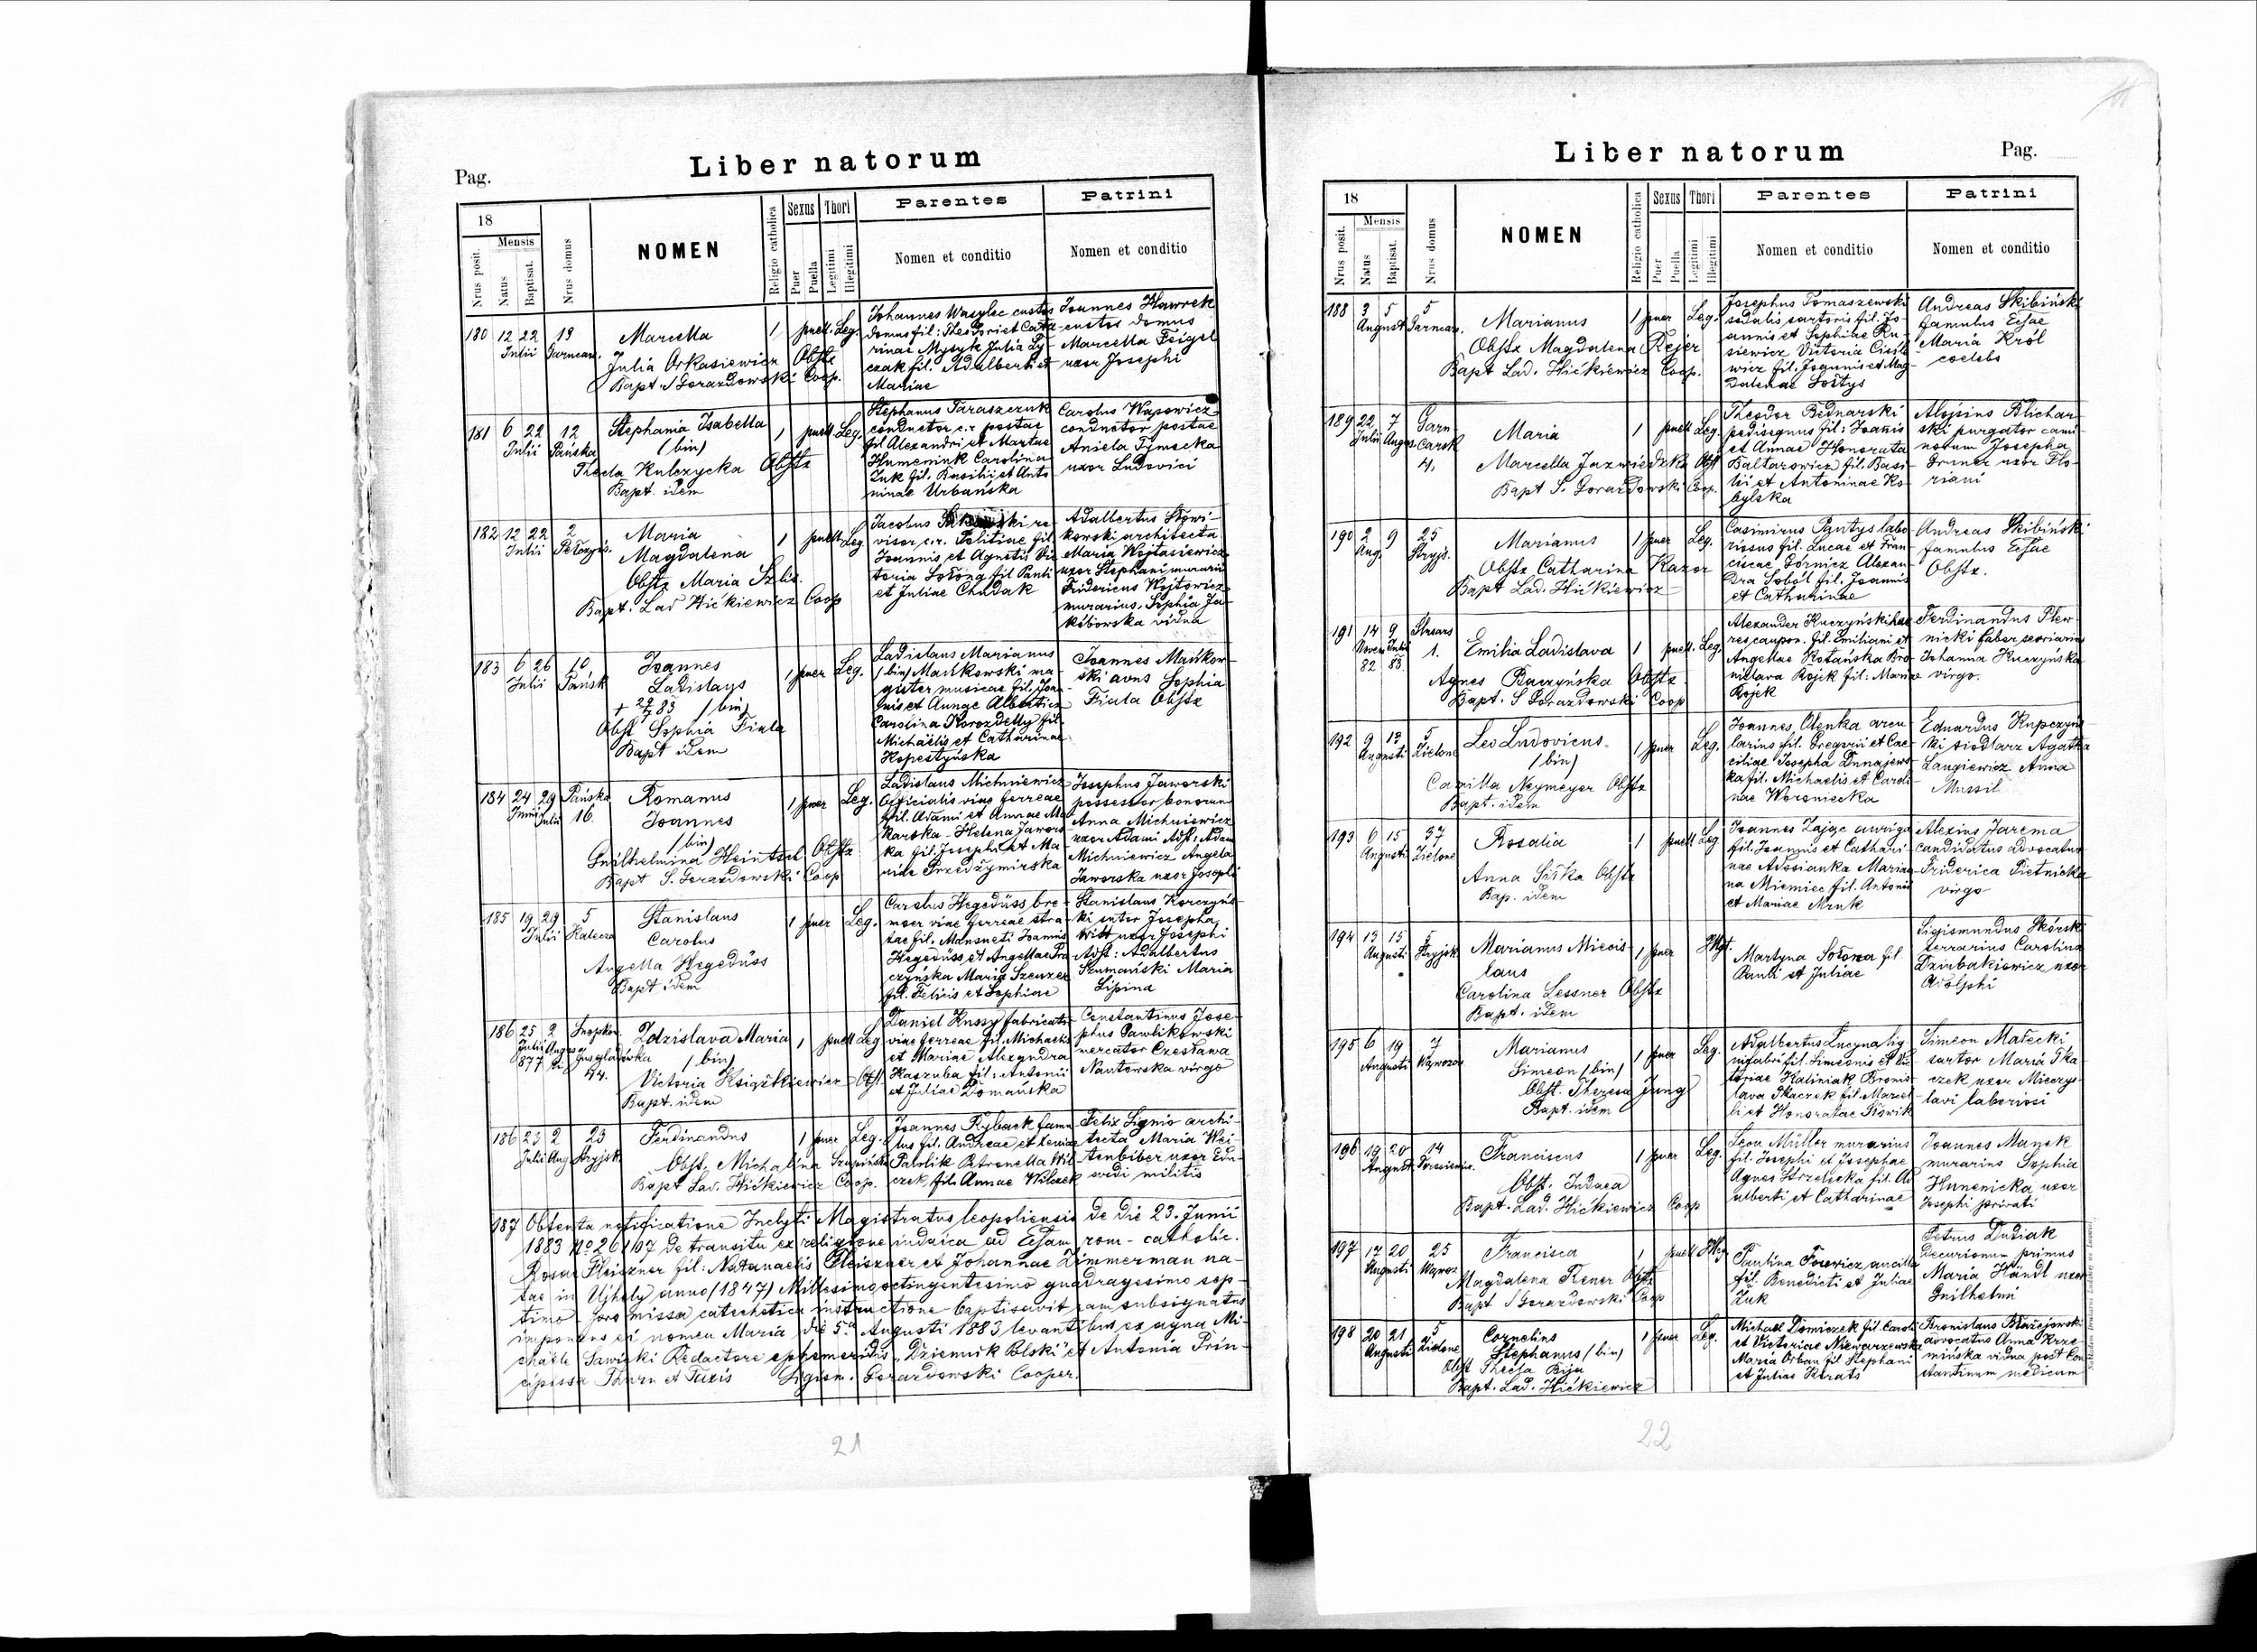 Pag.
Liber natorum
18
Mensis
Nrus posit.
Natus
Baptisat.
Nrus domus
NOMEN
Religio catholica
Sexus
Puer
Puella
Thori
Legitimi
Illegitimi
Parentes
Nomen et conditio
Patrini
Nomen et conditio
180 12 22 19
Julii Garncar.
Marcella
Julia Orkasiewicz Obstx
Bapt. S Gorazdowski Coop.
1 puell. Leg.
Johannes Wasylec custos
domus fil: Theodori et Catha-
rinae Mysyk Julia Ły-
czak fil: Adalberti et
Mariae
Joannes Hawrek
custos domus
Marcella Feigel
uxor Josephi
181 6 22 12
Julii Pańska
Stephania Isabella
(bin)
Thecla Kulczycka Obstx
Bapt. idem
1 puell. Leg.
Stephanus Taraszczuk
conductor c.r. postae
fil Alexandri et Martae
Humeniuk Carolina
Żuk fil. Basilii et Anto-
ninae Urbańska
Carolus Wąsowicz
conductor postae
Aniela Tymecka
uxor Ludovici
182 12 22 2
Julii
Maria
Magdalena
Obstx Maria
Bapt. Lad Hićkiewicz Coop
1 puell. Leg.
Jacobus re-
visor c.r. Politiae fil
Joannis et Agnetis Vic-
toria fil Pauli
et Juliae Chudak
Adalbertus Słowi-
kowski architecta
Maria Wojtasiewicz
uxor Stephani murarii
Fridericus Wojtowicz
murarius. Sophia Ja-
kóborska vidua
183 6 26 10
Julii Pańsk
Joannes
Ladislaus
(bin)
Obst Sophia Fiala
Bapt idem
1 puer Leg.
Ladislaus Marianus
(bin) Mańkowski ma-
gister musicae fil. Joan-
nis et Annae
Carolina fil.
Michaelis et Catharinae
Kopestyńska
Joannes Mańkow-
ski avus Sophia
Fiala Obstx
184 24 29 Pańska
Junii Julii 16.
Romanus
Joannes
(bin)
Guilhelmina Heintsch Obstx
Bapt S. Gorazdowski Coop
1 puer Leg.
Ladislaus Michniewicz
Officialis viae ferreae
fil. Adami et Annae Ma-
karska - Helena Jawors-
ka fil. Josephi et Ma-
riae Przedżymirska
Josephus Jaworski
possessor bonorum
Anna Michniewicz
uxor Adami Adst: Adam
Michniewicz Angela
Jaworska uxor Josephi
185 19 29 5
Julii Kalecza
Stanislaus
Carolus
Angella Hegedüss
Bapt idem
1 puer Leg.
Carolus Hegedüss bre-
mser viae ferreae stra-
tae fil. Mansueti Joannis
Hegedüss et Angellae Pra-
czyńska Maria Szenzer
fil. Felicis et Sophiae
Stanislaus Korczyńs-
ki sutor Josepha
Witt uxor Josephi
Adst: Adalbertus
Szumański Maria
Lipina
186 25 2
Julii
877
44.
Zdzislava Maria
(bin)
Victoria Książkiewicz Obst.
Bapt. idem
1 puell Leg
Daniel Kussy fabricator
viae ferreae fil. Michaelis
et Mariae Alexandra
Kaszuba fil: Antonii
et Juliae Domańska
Constantinus Jose-
phus Pawlikowski
mercator Czesława
Nawtorska virgo
186 23 2 23
Julii Aug Stryjsk.
Ferdinandus
Obst. Michalina
Bapt Lad. Hićkiewicz Coop.
1 puer Leg.
Joannes Ryback famu-
lus fil. Andreae et
Pawlik Petronella Wil-
czek fil. Annae Wilczek
Felix Signio archi-
tecta Maria Wei-
tenbiber uxor Edu-
ardi militis
187 Obtenta notificatione Inclyti Magistratus leopoliensis de die 23. Junii
1883 No 26107 de transitu ex religione iudaica ad Ecclam rom-catholic.
Rosae Fleiszner fil: Natanaelis Fleiszner et Johannae Zimmerman na-
tae in Ujhely anno (1847) Millesimo octingentesimo quadragesimo sep-
timo - praemissa catechetica instructione baptisavit eam subsignatus
imponens ei nomen Maria die 5a Augusti 1883 levantibus ex aqua Mi-
chaele Sawicki Redactore ephemeridis „Dziennik Polski" et Antonia Prin-
cipissa Thurn et Taxis Sigism. Gorazdowski Cooper.
21
Liber natorum
Pag.
18
Mensis
Nrus posit.
Natus
Baptisat.
Nrus domus
NOMEN
Religio catholica
Sexus
Puer
Puella
Thori
Legitimi
Illegitimi
Parentes
Nomen et conditio
Patrini
Nomen et conditio
188 3 5 5
August Garncar.
Marianus
Obstx Magdalena Rejer
Bapt Lad. Hićkiewicz Coop.
1 puer Leg.
Josephus Tomaszewski
sodalis sartoris fil. Jo-
annis et Sophiae Ru-
siewicz Victoria
wicz fil. Joannis et Mag-
dalenae Sołtys
Andreas Skibiński
famulus Ecclae
Maria Król
coelebs
189 22 7 Garn-
Julii Augus. carsk
4.
Maria
Marcella Jazwiedzka Obst
Bapt S. Gorazdowski Coop.
1 puell Leg.
Theodor Bednarski
pedisequus fil: Joanis
et Annae Honorata
Baltarowicz fil. Basi-
lii et Antoninae Ko-
bylska
Aloisius Blichar-
ski purgator cami-
norum Josepha
Gruner uxor Flo-
riani
190 2 9 25
Aug. Stryjs.
Marianus
Obstx Catharina Kazor
Bapt Lad. Hićkiewicz
1 puer Leg.
Casimirus Pantys labo-
riosus fil. Lucae et Fran-
ciscae Górnicz Alexan-
dra Soból fil. Joannis
et Catharinae
Andreas Skibiński
famulus Ecclae
Obstx.
191 14 9
Novem Julii 1.
82 83.
Emilia Ladislava
Agnes Baczyńska Obstx
Bapt. S Gorazdowski Coop
1 puell. Leg.
Alexander Kuczyński hae-
res caupon. fil. Emiliani et
Angellae Kotańska Bro-
nislava Rojek fil: Mariae
Rojek
Ferdinandus Plew-
nicki faber scoriarius
Johanna Kuczyńska
virgo.
192 9 12 5
Augusti Zielone
Leo Ludovicus.
(bin)
Camilla Neymeyer Obstx
Bapt. idem
1 puer Leg.
Joannes Olenka arcu-
larius fil. Gregorii et Cae-
ciliae Josepha Dunajews-
ka fil. Michaelis et Caroli-
nae Woroniecka
Eduardus Kupczyńs-
ki siodlarz Agatha
Langiewicz Anna
Mussil
193 6 15 37
Augusti Zielone
Rosalia
Anna Siśka Obstx
Bap. idem
1 puell Leg.
Joannes Zając auriga
fil. Joannis et Cathari-
nae Adosianka Maria
na Miemiec fil. Antonii
et Mariae Mruk
Alexius Jarema
candidatus advocatus
Friderica Pietnicka
virgo
194 13 15 5
Augusti Stryjsk
Marianus Miecis-
laus
Carolina Lessner Obstx
Bapt. idem
1 puer Illgt.
Martyna Sołowa fil.
Pauli et Juliae
Sigismundus Skórski
serrarius Carolina
Dziubakiewicz uxor
Adolphi
195 6 19 7
Augusti
Marianus
Simeon (bin)
Obst. Theresa Jung
Bapt. idem
1 puer Leg.
Adalbertus Lucyna lig-
nifabri fil. Simeonis et Vic-
toriae Kaliniak Bronis-
lava Tkaczek fil. Marcel-
li et Honoratae Słowik
Simeon Małecki
sartor Maria Tka-
czek uxor Mieczys-
lavi laboriosi
196 19 20 14
August
Franciscus
Obst. Judaea
Bapt. Lad. Hićkiewicz Coop
1 puer Leg.
Leon Müller murarius
fil. Josephi et Josephae
Agnes Strzelecka fil. Ad-
alberti et Catharinae
Joannes Manek
murarius Sophia
Humenicka uxor
Josephi privati
197 17 20 25
Augusti
Francisca
Magdalena Rener Obstx
Bapt S Gorazdowski Coop
1 puell Illeg
Paulina ancilla
fil. Benedicti et Juliae
Żuk
Petrus Dusiak
Decurionum primus
Maria Händl uxor
Guilhelmi
198 20 21 5
Augusti Zielone
Cornelius
Stephanus (bin)
Obst Thecla Bija
Bapt. Lad. Hićkiewicz
1 puer Leg.
Michael Domiczek fil. Caroli
et Victoriae Niewarzewska
Maria Orban fil Stephani
et Juliae
Bronislaus Błażejowski
advocatus Anna Krze-
mińska vidua post Con-
stantinum medicum
22